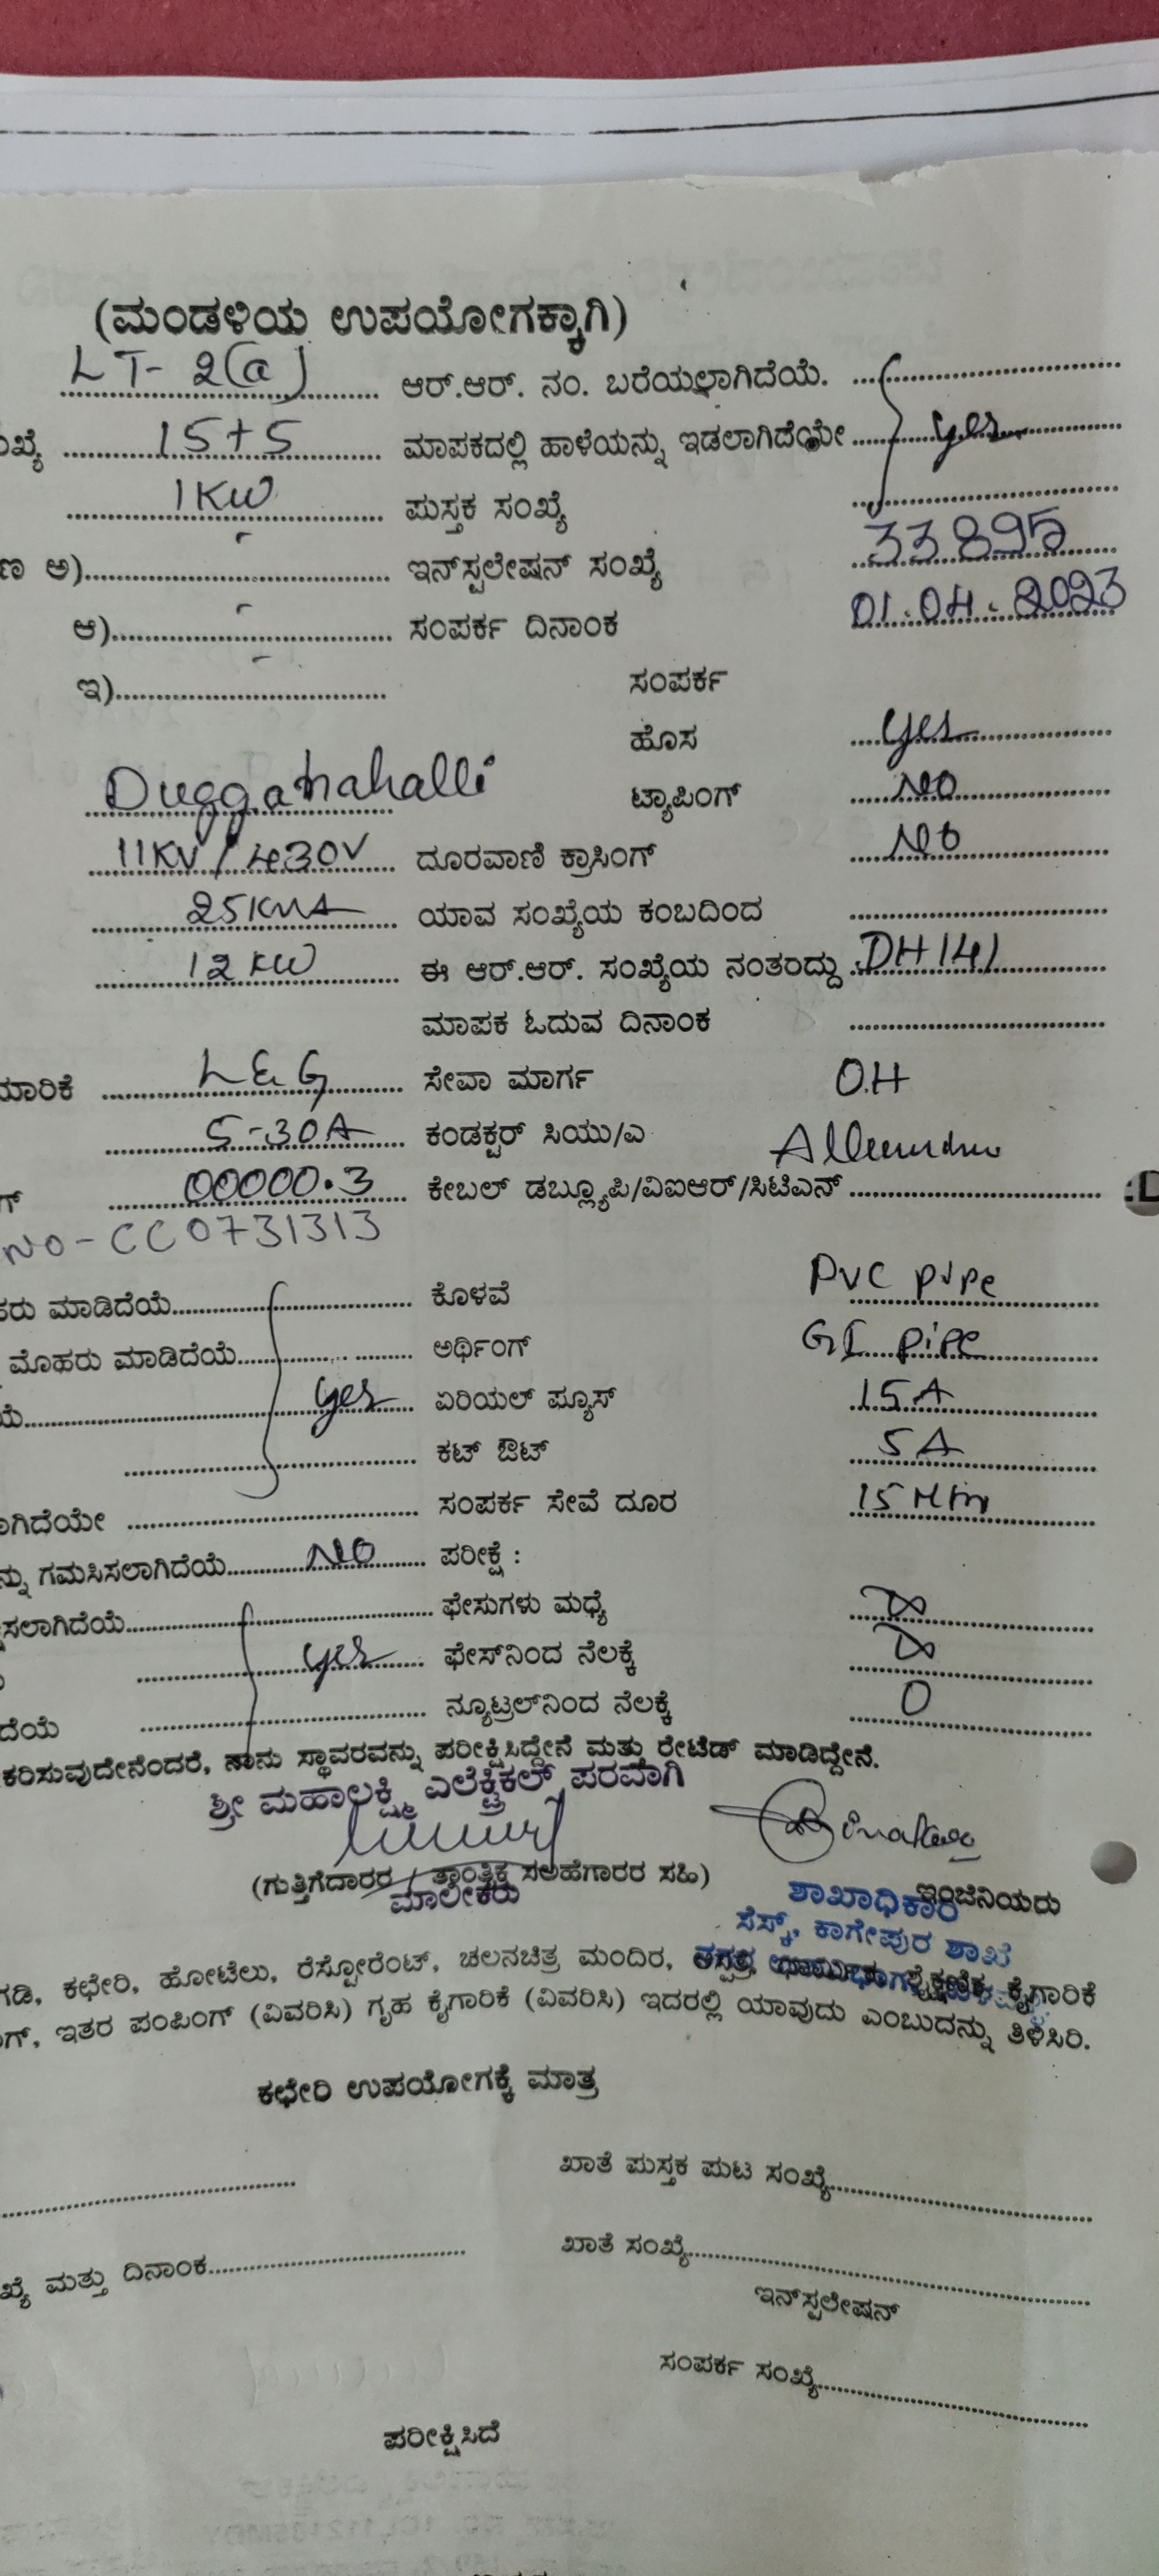 (ಮಂಡಳಿಯ ಉಪಯೋಗಕ್ಕಾಗಿ)
LT- 2(a) ಆರ್.ಆರ್. ನಂ. ಬರೆಯಲಾಗಿದೆಯೆ.
15+5 ಮಾಪಕದಲ್ಲಿ ಹಾಳೆಯನ್ನು ಇಡಲಾಗಿದೆಯೇ yes
1KW ಪುಸ್ತಕ ಸಂಖ್ಯೆ
ಅ) ಇನ್‌ಸ್ಟಲೇಷನ್ ಸಂಖ್ಯೆ 33895
ಆ) ಸಂಪರ್ಕ ದಿನಾಂಕ 01.04.2023
ಇ) ಸಂಪರ್ಕ
ಹೊಸ yes
Dugganahalli ಟ್ಯಾಪಿಂಗ್ NO
11KV/430V ದೂರವಾಣಿ ಕ್ರಾಸಿಂಗ್ NO
25KVA ಯಾವ ಸಂಖ್ಯೆಯ ಕಂಬದಿಂದ
12KW ಈ ಆರ್.ಆರ್. ಸಂಖ್ಯೆಯ ನಂತರದ್ದು DH141
ಮಾಪಕ ಓದುವ ದಿನಾಂಕ
L&G ಸೇವಾ ಮಾರ್ಗ OH
5-30A ಕಂಡಕ್ಟರ್ ಸಿಯು/ಎ
00000.3 ಕೇಬಲ್ ಡಬ್ಲ್ಯೂಪಿ/ವಿಐಆರ್/ಸಿಟಿಎನ್
NO-CC0731313
ಮಾಡಿದೆಯೆ ಕೊಳವೆ PVC pipe
ಮೊಹರು ಮಾಡಿದೆಯೆ ಅರ್ಥಿಂಗ್ GI pipe
yes ಏರಿಯಲ್ ಫ್ಯೂಸ್ 15A
ಕಟ್ ಔಟ್ 5A
ಸಂಪರ್ಕ ಸೇವೆ ದೂರ 15 Mtr
ಗಮನಿಸಲಾಗಿದೆಯೆ NO ಪರೀಕ್ಷೆ :
ಫೇಸುಗಳು ಮಧ್ಯೆ
yes ಫೇಸ್‌ನಿಂದ ನೆಲಕ್ಕೆ
ನ್ಯೂಟ್ರಲ್‌ನಿಂದ ನೆಲಕ್ಕೆ 0
ನಾನು ಸ್ಥಾವರವನ್ನು ಪರೀಕ್ಷಿಸಿದ್ದೇನೆ ಮತ್ತು ರೇಟೆಡ್ ಮಾಡಿದ್ದೇನೆ.
ಶ್ರೀ ಮಹಾಲಕ್ಷ್ಮಿ ಎಲೆಕ್ಟ್ರಿಕಲ್ ಪರವಾಗಿ
(ಗುತ್ತಿಗೆದಾರರ / ತಾಂತ್ರಿಕ ಸಲಹೆಗಾರರ ಸಹಿ)
ಮಾಲೀಕರು
ಇಂಜಿನಿಯರು
ಶಾಖಾಧಿಕಾರಿ
ಸೆಸ್ಕ್, ಕಾಗೇಪುರ ಶಾಖೆ
ಕಛೇರಿ, ಹೋಟೆಲು, ರೆಸ್ಟೋರೆಂಟ್, ಚಲನಚಿತ್ರ ಮಂದಿರ, ಶೈಕ್ಷಣಿಕ, ಕೈಗಾರಿಕೆ
ಇತರ ಪಂಪಿಂಗ್ (ವಿವರಿಸಿ) ಗೃಹ ಕೈಗಾರಿಕೆ (ವಿವರಿಸಿ) ಇದರಲ್ಲಿ ಯಾವುದು ಎಂಬುದನ್ನು ತಿಳಿಸಿರಿ.
ಕಛೇರಿ ಉಪಯೋಗಕ್ಕೆ ಮಾತ್ರ
ಖಾತೆ ಪುಸ್ತಕ ಪುಟ ಸಂಖ್ಯೆ
ಮತ್ತು ದಿನಾಂಕ ಖಾತೆ ಸಂಖ್ಯೆ
ಇನ್‌ಸ್ಪಲೇಷನ್
ಸಂಪರ್ಕ ಸಂಖ್ಯೆ
ಪರೀಕ್ಷಿಸಿದೆ